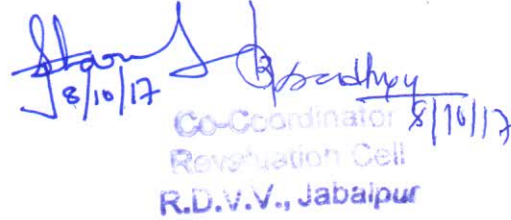 8/10/17
8/10/17
Co-Coordinator
Revaluation Cell
R.D.V.V., Jabalpur